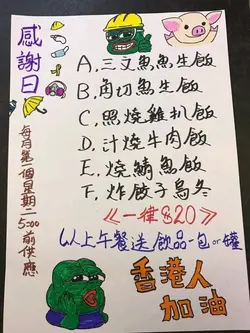 感謝日
A. 三文魚魚生飯
B. 角切魚生飯
C. 照燒雞扒飯
D. 汁燒牛肉飯
E. 燒鯖魚飯
F. 炸餃子烏冬
《一律$20》
以上午餐送飲品一包or罐
每月第一個星期二
5:00前供應
香港人
加油